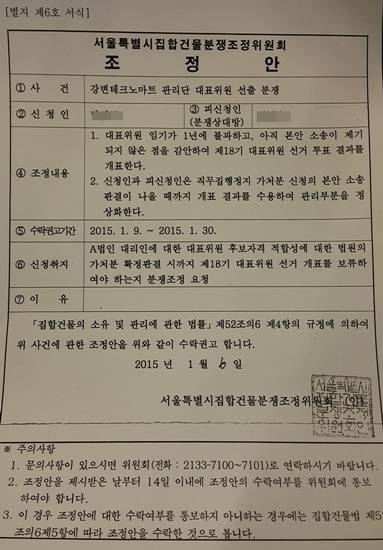 [별지 제6호 서식]
서울특별시집합건물분쟁조정위원회
조 정 안
① 사 건 강변테크노마트 관리단 대표위원 선출 분쟁
② 신 청 인 ③ 피신청인
(분쟁상대방)
1. 대표위원 임기가 1년에 불과하고, 아직 본안 소송이 제기
되지 않은 점을 감안하여 제18기 대표위원 선거 투표 결과를
개표한다.
④ 조정내용
2. 신청인과 피신청인은 직무집행정지 가처분 신청의 본안 소송
판결이 나올 때까지 개표 결과를 수용하여 관리부분을 정
상화한다.
⑤ 수락권고기간 2015. 1. 9. ~ 2015. 1. 30.
A법인 대리인에 대한 대표위원 후보자격 적합성에 대한 법원의
⑥ 신청취지 가처분 확정판결 시까지 제18기 대표위원 선거 개표를 보류하
여야 하는지 분쟁조정 요청
⑦ 이 유
「집합건물의 소유 및 관리에 관한 법률」제52조의6 제4항의 규정에 의하여
위 사건에 관한 조정안을 위와 같이 수락권고 합니다.
2015 년 1 월 6 일
서울특별시집합건물분쟁조정위원회 (인)
※ 주의사항
1. 문의사항이 있으시면 위원회(전화 : 2133-7100~7101)로 연락하시기 바랍니다.
2. 조정안을 제시받은 날부터 14일 이내에 조정안의 수락여부를 위원회에 통보
하여야 합니다.
3. 이 경우 조정안에 대한 수락여부를 통보하지 아니하는 경우에는 집합건물법 제5
조의6제5항에 따라 조정안을 수락한 것으로 봅니다.